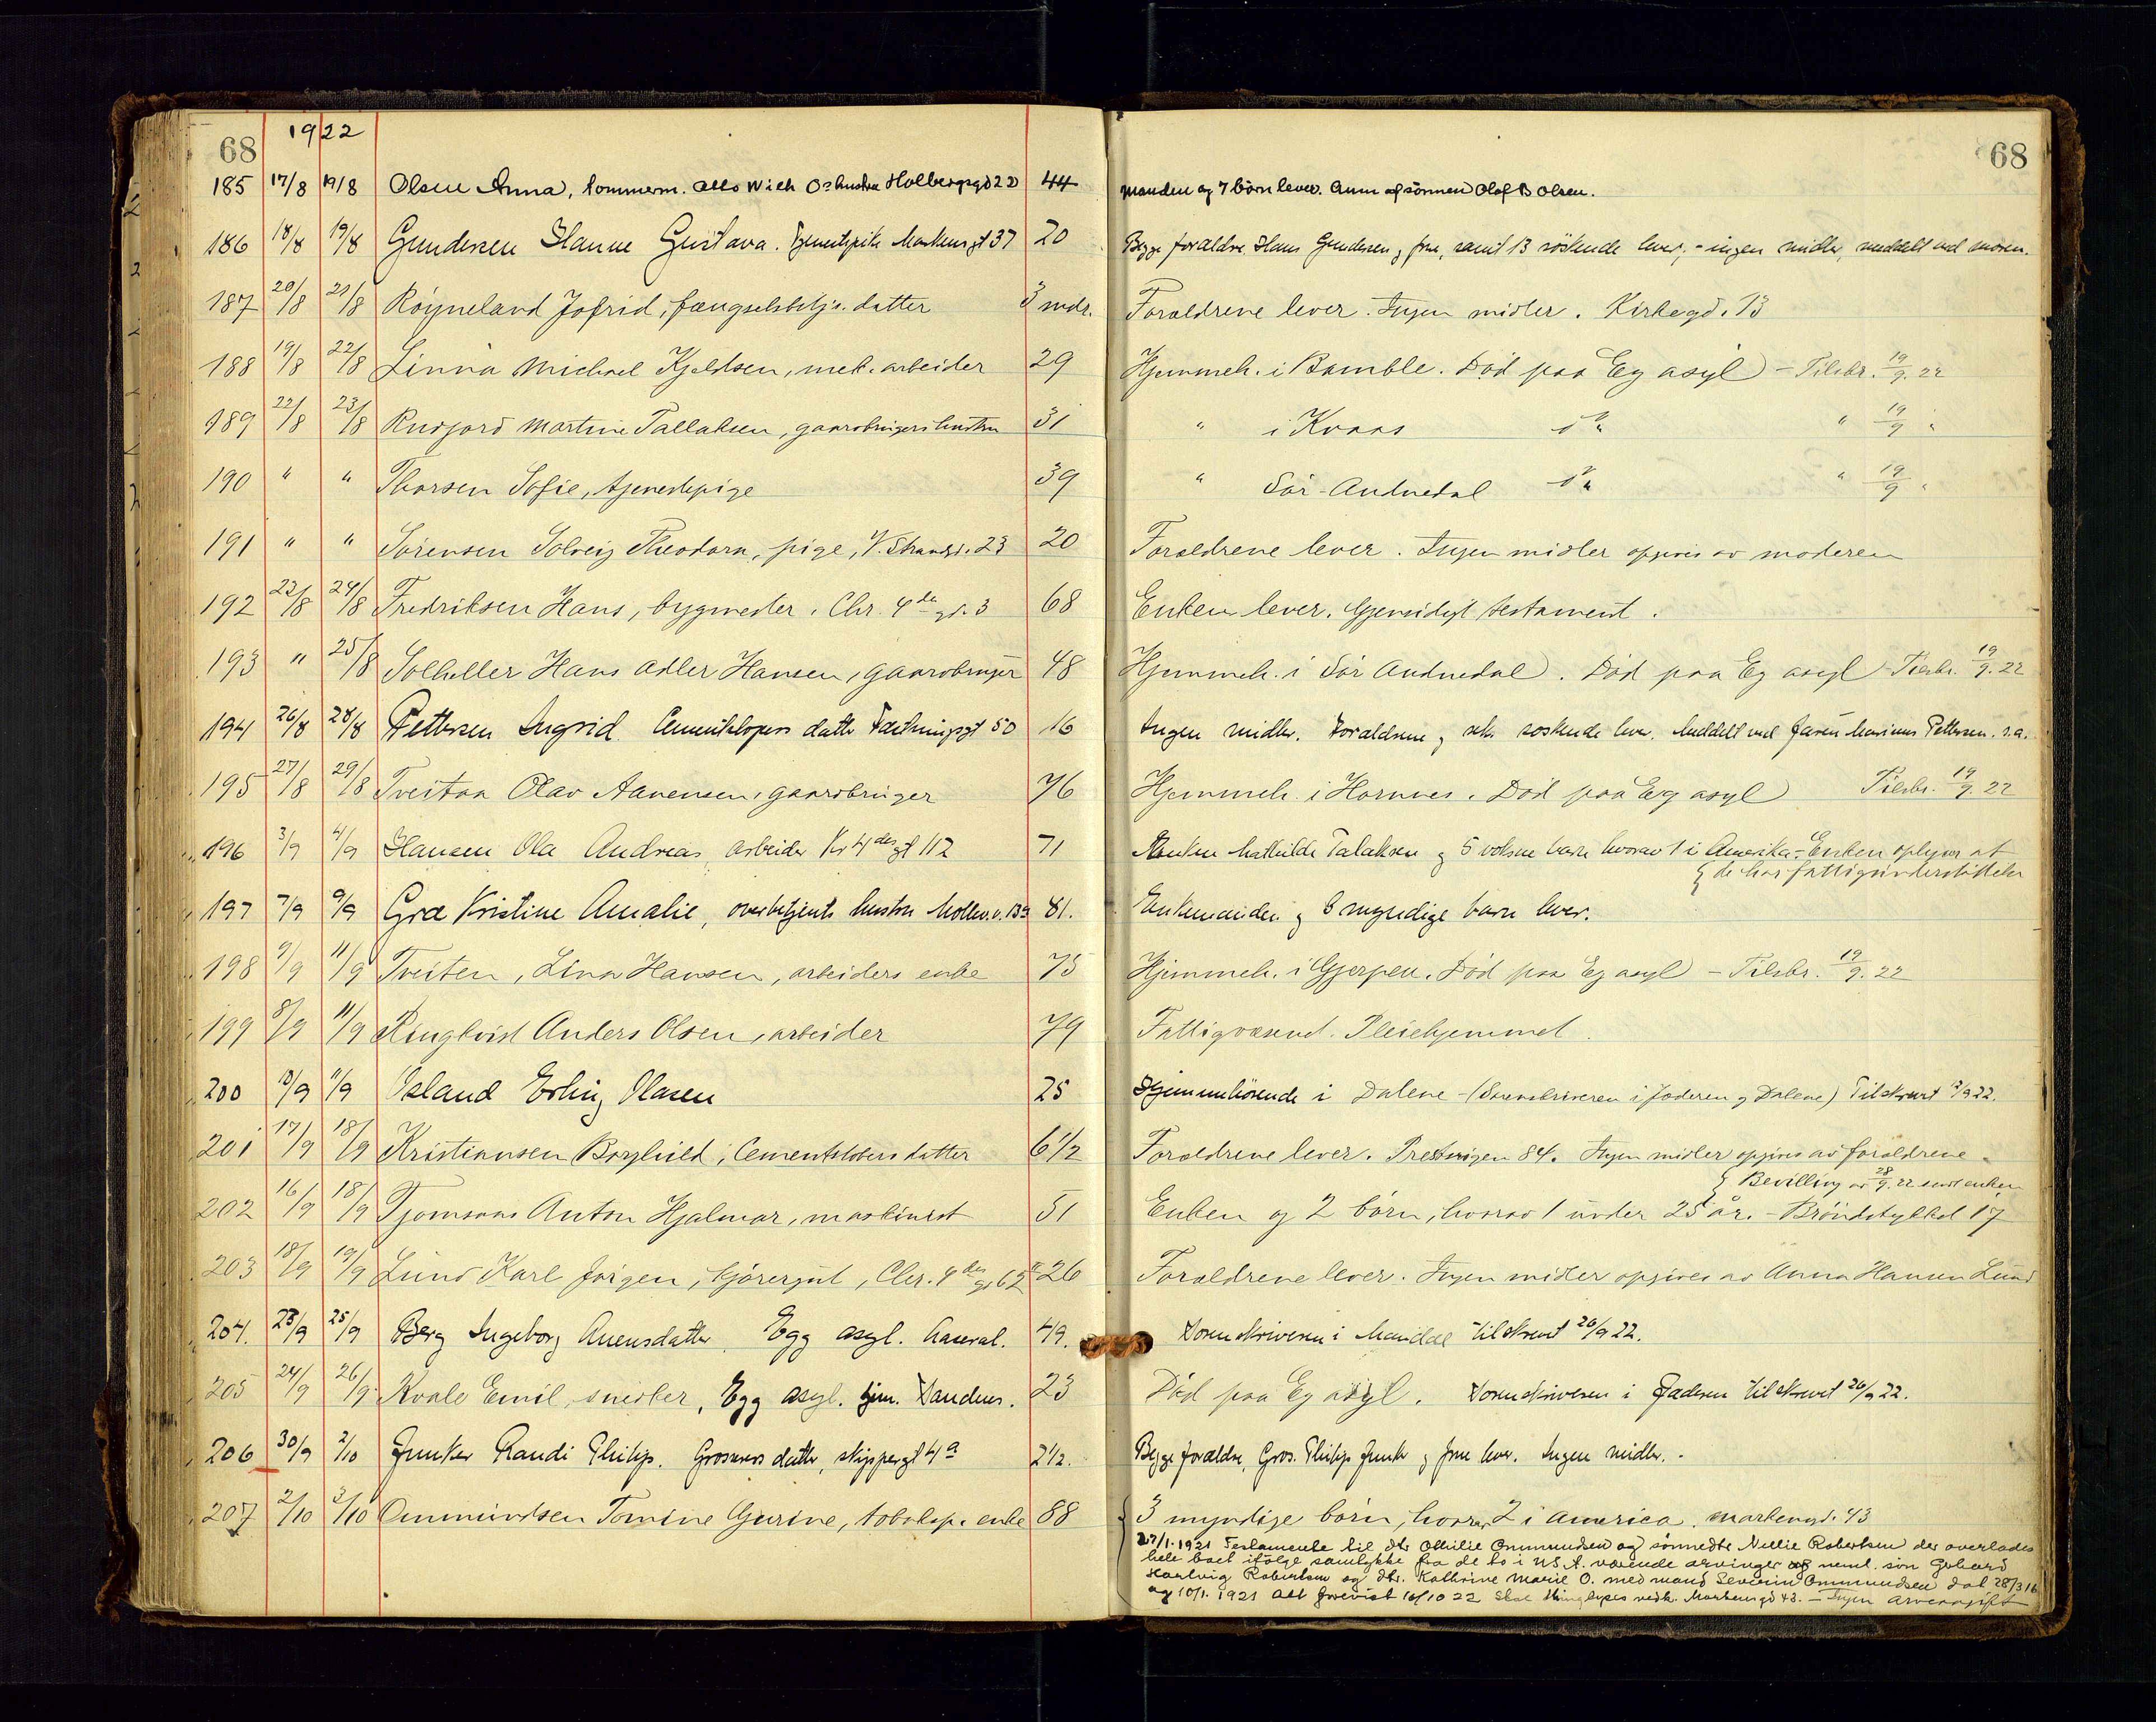 68 1922 68
185 17/8 19/8 Olsen Anna, tommerm. Holbergsgd 22 44 Manden og 7 börn lever. Anm af sönnen Olof B Olsen.
186 18/8 19/8 Gundersen Hanne Gustava. Tjenestpike Markensgt 37 20 Begge forældre Hans Gundersen og frue, samt 13 söskende lever, - ingen midler, meddelt ved moren.
187 20/8 21/8 Röyneland Jofrid, fængselsbetj. datter 3 mdr. Forældrene lever. Ingen midler. Kirkegd. 13
188 19/8 22/8 Linna Michael Kjeldsen, mek. arbeider 29 Hjemmeh. i Bamble. Död paa Eg asyl - Tilskr. 19/9. 22
189 22/8 23/8 Rudjord Martine Tallaksen, gaardbrugers hustru 31 " i Kvaas do " 19/9 "
190 " " Thorsen Sofie, tjenestepige 39 " Sör-Audnedal do " 19/9 "
191 " " Sörensen Solveig Theodora, pige, V. Strandgd. 23 20 Forældrene lever. Ingen midler opgives av moderen
192 22/8 24/8 Fredriksen Hans, bygmester. Chr. 4de gd. 3 68 Enken lever. Gjensidigt testament.
193 " 25/8 Solheller Hans Adler Hansen, gaardbruger 48 Hjemmeh. i Sör Audnedal. Död paa Eg asyl - Tilskr. 19/9. 22
194 26/8 28/8 Pettersen Ingrid Cementstopers datter Fæstningsgt 50 16 Ingen midler. Forældrene og seks söskende lever. Meddelt ved faren Marinus Pettersen. s.a.
195 27/8 29/8 Tveitaa Olav Aanensen, gaardbruger 76 Hjemmeh. i Hornnes. Död paa Eg asyl Tilskr. 19/9. 22
196 3/9 4/9 Hansen Ola Andreas, arbeider Kr 4des gt 112 71 Enken Mathilde Talaksen og 5 voksne barn hvorav 1 i Amerika. - Enken oplyser at
de har fattigunderstöttelse
197 7/9 9/9 Gra Kristine Amalie, overbetjents hustru 81. Enkemanden og 8 myndige barn lever.
198 9/9 11/9 Tveiten, Lina Hansen, arbeiders enke 75 Hjemmeh. i Gjerpen. Död paa Eg asyl - Tilskr. 19/9. 22
199 8/9 11/9 Ringkvist Anders Olsen, arbeider 79 Fattigvæsend. Pleiehjemmet.
200 10/9 11/9 Osland Erling Olasen 25 Hjemmehörende i Dalene - (Sorenskriveren i Jæderen og Dalene) Tilskrevet
201 17/9 18/9 Kristiansen Borghild, Cementstöbers datter 6 1/2 Forældrene lever. 84. Ingen midler opgives av forældrene.
Bevilling av 28/9. 22 sendt enken
202 16/9 18/9 Tjomsaas Anton Hjalmar, maskinist 51 Enken og 2 börn, hvorav 1 under 25 år. - Bröndstykket 17
203 18/9 19/9 Lund Karl Jörgen, kjöregut, Chr. 4des gd 62 26 Forældrene lever. Ingen midler opgives av Anna Hansen Lund
204. 23/9 25/9 Berg Ingeborg Anensdatter, Egg asyl. Aaseral. 49. Sorenskriveren i Mandal tilskrevet 26/9 22.
205 24/9 26/9 Kvale Emil, snedker, Egg asyl. hjm. Sandnes. 23 Död paa Eg asyl. Sorenskriveren i Jæderen tilskrevet 26/9 22.
206 30/9 2/10 Junker Randi Philip. Grosserers datter, skippergt 4a 2 1/2. Begge forældre, Gros. Philip Junker og frue lever. Ingen midler. -
207 2/10 3/10 Ommundsen Tomine Gurine, tobsksp. enke 88 3 myndige börn, hvorav 2 i America. Markensgd. 43
27/1. 1921 Testamente til dtr Othilie Ommundsen og sönnedtr Nellie Robertsen der overlades
hele boet ifölge samtykke fra de to i U.S.A. værende arvinger neml. sön Gerhard
Hartvig Robertsen og dtr. Kathrine Marie O. med mand Severin Ommundsen dat 28/3 16
og 10/1. 1921 Alt forevist 16/10 22 Skal thinglyses vedk. Markensgd 43. - Ingen arveavgift